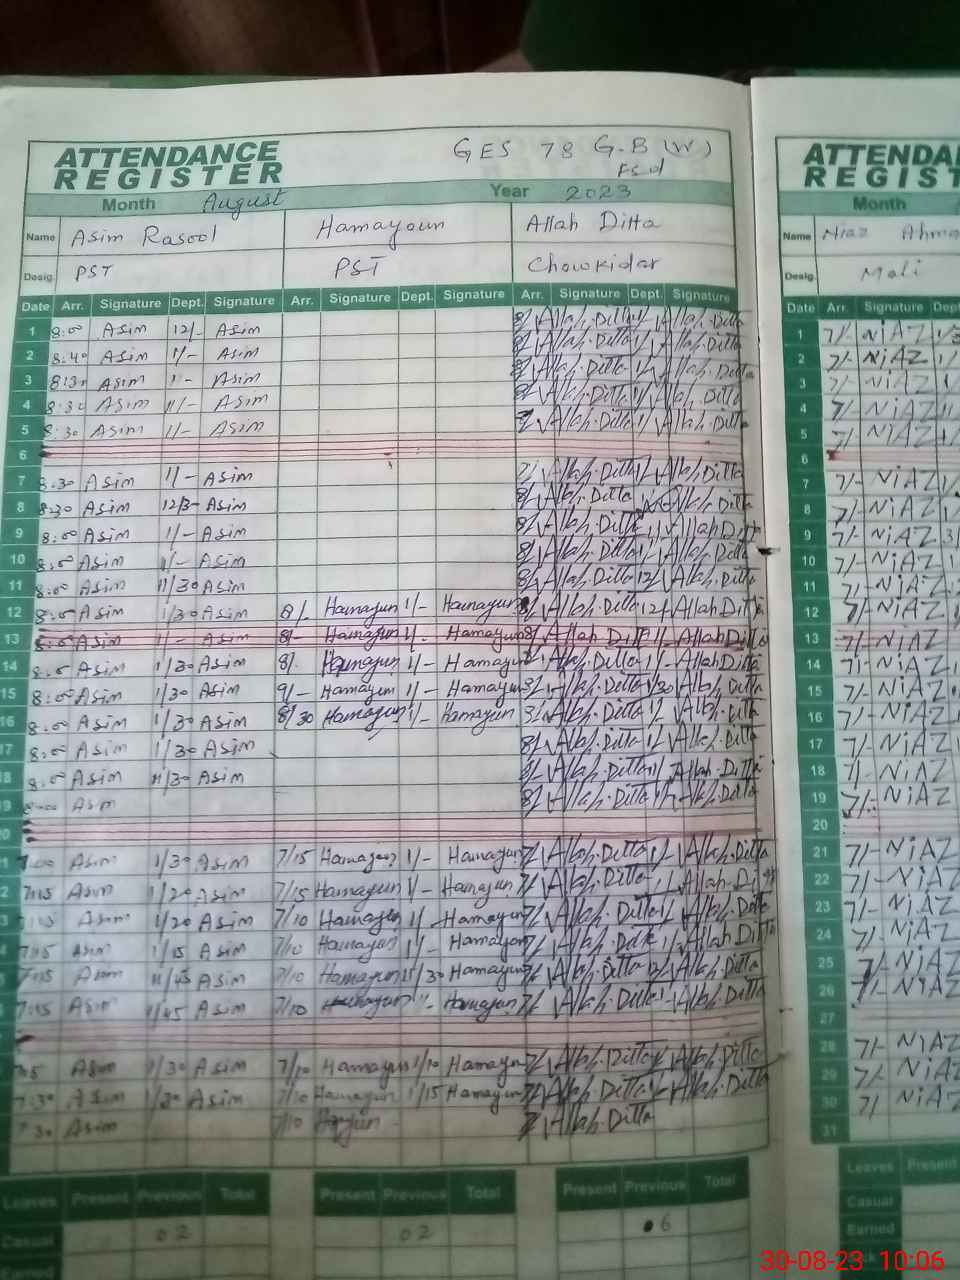 GES 78 G.B (W)
ATTENDANCE
REGISTER
Fsd
Month August Year 2023
Name Asim Rasool Hamayoun Allah Ditta
Desig. PST PST Chowkidar
Date Arr. Signature Dept. Signature Arr. Signature Dept. Signature Arr. Signature Dept. Signature
1 8:00 Asim 12/- Asim 8/ Allah.Ditta 1/ Allah.Ditta
2 8:40 Asim 1/- Asim 8/ Allah.Ditta 1/ Allah.Ditta
3 8:30 Asim 1/- Asim 8/ Allah.Ditta 1/ Allah.Ditta
4 8:30 Asim 11/- Asim 8/ Allah.Ditta Allah.Ditta
5 8:30 Asim 1/- Asim Allah.Ditta 1/ Allah.Ditta
6
7 8.30 Asim 1/- Asim Allah.Ditta Allah.Ditta
8 8:30 Asim Asim 8/ Allah.Ditta Allah.Ditta
9 8:00 Asim 1/- Asim 8/ Allah.Ditta Allah Ditta
10 8:00 Asim 1/- Asim 8/ Allah.Ditta Allah.Ditta
11 8:00 Asim 11/30 Asim 8/ Allah.Ditta 12/ Allah.Ditta
12 8:00 Asim 1/30 Asim 8/. Hamayun 1/- Hamayun Allah.Ditta 12/- Allah Ditta
13 8:00 Asim 1/- Asim 8/- Hamayun 1/. Hamayun 8/ Allah Ditta Allah Ditta
14 8:00 Asim 1/30 Asim 8/. Hamayun 1/- Hamayun Allah.Ditta 1/- Allah Ditta
15 8:00 Asim 1/30 Asim 9/- Hamayun 1/- Hamayun Allah.Ditta 1/30 Allah.Ditta
16 8:00 Asim 1/30 Asim 8/30 Hamayun 1/- Hamayun Allah.Ditta 1/- Allah.Ditta
17 8:00 Asim 1/30 Asim 8/ Allah.Ditta 1/ Allah.Ditta
18 8:00 Asim 11/30 Asim 8/- Allah.Ditta Allah.Ditta
19 8:00 Asim 8/ Allah.Ditta 1/- Allah.Ditta
20
21 7:00 Asim 1/30 Asim 7/15 Hamayun 1/- Hamayun 7/ Allah.Ditta 1/ Allah.Ditta
22 7:15 Asim 1/20 Asim 7/15 Hamayun 1/- Hamayun 7/ Allah.Ditta Allah.Ditta
Asim 1/20 Asim 7/10 Hamayun 1/- Hamayun 7/ Allah.Ditta 1/ Allah.Ditta
7:15 Asim 1/15 Asim 7/10 Hamayun 1/- Hamayun 7/ Allah. Allah Ditta
7:15 Asim 11/45 Asim 7/10 Hamayun 11/30 Hamayun 7/ Allah.Ditta 12/ Allah.Ditta
7:15 Asim 1/45 Asim 7/10 Hamayun 1/- Hamayun 7/ Allah.Ditta 1/- Allah.Ditta
Asim 1/30 Asim 7/10 Hamayun 1/10 Hamayun 7/ Allah.Ditta Allah.Ditta
7:30 Asim 1/30 Asim 7/10 Hamayun 1/15 Hamayun 7/ Allah.Ditta 1/- Allah.Ditta
7:30 Asim 7/10 7/ Allah.Ditta
Leaves Present Previous Total Present Previous Total Present Previous Total
Casual 02 02 6
Earned
ATTENDA
REGIST
Month
Name Niaz Ahma
Desig. Mali
Date Arr. Signature Dept
1 7/- NiAZ
2 7/- NiAZ
3 7/- NiAZ
4 7/- NiAZ
5 7/- NiAZ
6
7 7/- NiAZ
8 7/- NiAZ
9 7/- NiAZ
10 7/- NiAZ
11 7/- NiAZ
12 7/- NiAZ
13 7/- NiAZ
14 7/- NiAZ
15 7/- NiAZ
16 7/- NiAZ
17 7/- NiAZ
18 7/- NiAZ
19 7/- NiAZ
20
21 7/- NiAZ
22 7/- NiAZ
23 7/- NiAZ
24 7/- NiAZ
25 7/- NiAZ
26 7/- NiAZ
27
28 7/- NiAZ
29 7/- NiAZ
30 7/ NiAZ
31
Leaves Present
Casual
Earned
30-08-23 10:06